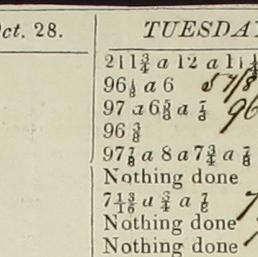 ct. 28.
TUESDAY
211¾ a 12 a 11
96⅛ a 6 5 7/8
97 a 6⅝ a ⅞ 96
96 ⅜
97⅞ a 8 a 7¾ a ⅞
Nothing done
7 1 3/16 a ¾ a ⅞ 7
Nothing done
Nothing done